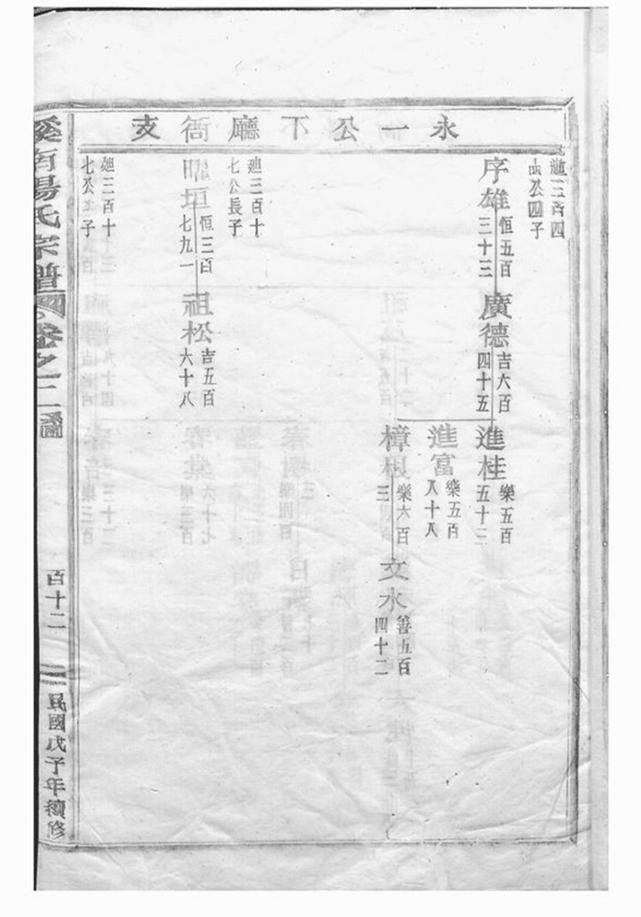 永一公下廳衙支
序雄
恒五百
三十三
廣德
吉六百
四十五
進桂
樂五百
五十三
進富
樂五百
八十八
樟根
樂六百
三
文水
善五百
四十二
廸三百十
七公長子
垣
恒三百
七九一
祖松
吉五百
六十八
廸三百十
七公 子
溪南楊氏宗譜
卷之二
圖
百十二
民國戊子年續修